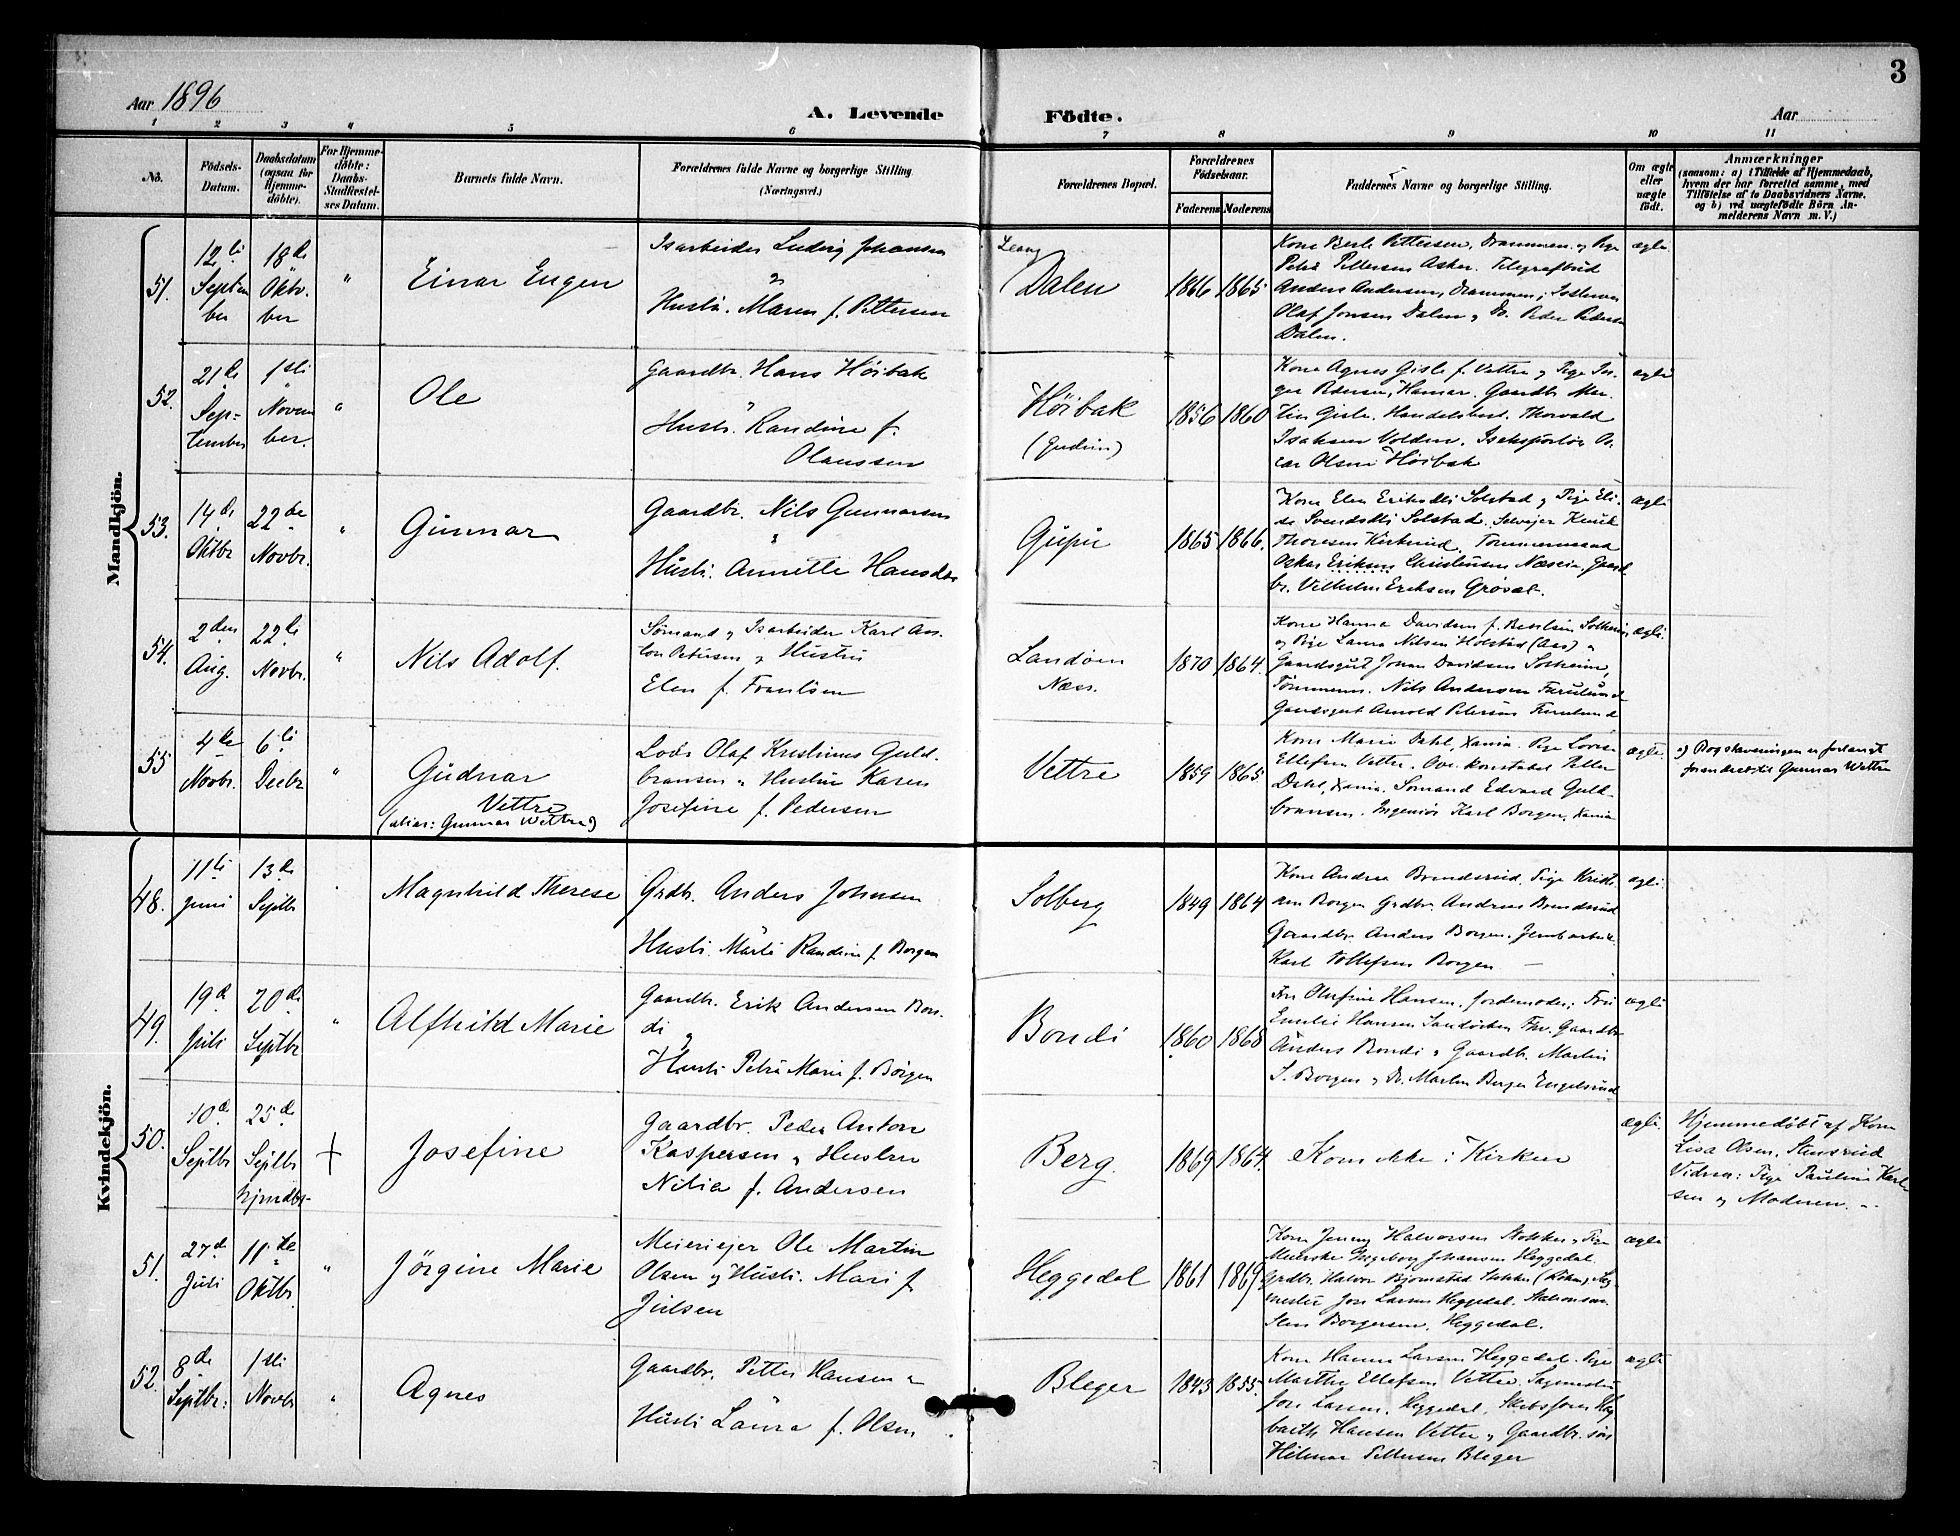 3
Aar 1896
A. Levende Födte.
Aar
1 2 3 4 5 6 7 8 9 10 11
No.
Födsels-Datum.
Daabsdatum (ogsaa for Hjemme-döbte).
For Hjemme-döbte: Daabs-Stadfæstel-ses Datum.
Barnets fulde Navn.
Forældrenes fulde Navne og borgerlige Stilling
(Næringsvei.)
Forældrenes Bopæl.
Forældrenes Födselsaar.
Faderens Moderens
Faddernes Navne og borgerlige Stilling.
Om ægte eller uægte født.
Anmærkninger
(saasom: a) i Tilfælde af Hjemmedaab,
hvem der har forrettet samme, med
Tilföielse af to Daabsvidners Navne.
og b) ved uægtefödte Börn An-
melderens Navn m. V.)
Mandkjön.
51.
12te
Septem
ber
18de
Oktbr.
ber
"
Einar Eugen
Isarbeider Ludvig Johansen
Hustr. Maren f. Pettersen
Dalen
1866 1865
Petra Pettersen Asker. Telegrafbud
Anders Andersen, Drammen;
Olaf Jonsen Dalen
Dalen.
ægte
52.
21de
Sep-
tember
1ste
Novem
ber.
"
Ole
Gaardbr. Hans Höibak
Hustr. Randine f.
Olaussen
Höibak
(Gudrun)
1856 1860
Kone Agnes Gisle f. Vettre og Pige
Pedersen, Hamar. Gaardb. Mar-
tin Gisle. Handelsbest. Thorvald
Isaksen Volden.
car Olsen Höibak
ægte
53.
14de
Oktbr
22de
Novbr.
"
Gunnar
Gaardbr. Nils Gunnarsen
Hustr. Annette Hansdr
Gupu
1865 1866.
Kone Elen Eriksdtr Solstad og Pige Eli-
se Svendsdtr Solstad. Selveier
Thoresen Kirkerud. Tømmermand
Oskar Eriksen Christensen Næsøen. Gaard-
br. Vilhelm Eriksen Grøset.
ægte
54.
2den
Aug.
22de
Novbr.
"
Nils Adolf.
Sömand og Isarbeider Karl An-
ton Petersen og Hustru
Elen f. Frantsen
Landöen
Næs.
1870 1864.
Kone Hanna Davidsen f. Berntsen Solheim
og Pige Laura Nilsen Holstad (Aas) og
Gaardsgut Johan Davidsen Solheim,
Tömmerm. Nils Andersen Furulund
Gaardsgut Arnold Petersen Furulund
ægte.
55.
4de
Novbr.
6te
Decbr
"
Gudnar
Vettre
(alias: Gunnar Wettre)
Lods Olaf Kristinus Guld-
bransen og Hustru Karen
Josefine f. Pedersen
Vettre
1859 1865
Kone Marie Dahl, Xania. Pige Lovise
Ellefsen Vettre. Ove. konstabel Petter
Dahl, Xania. Sömand Edvard Guld-
bransen. Ingeniör Karl Borgen, Xania
ægte.
Bogstaveringen er forlangt
forandret til Gunnar Wettre
Kvindekjön.
48.
11te
Juni
13de
Septbr
Magnhild Therese
Grdbr. Anders Johnsen
Hustr. Marte Randine f. Borgen
Solberg
1849 1864
Kone Andrea Brendsrud. Pige Kristi-
ane Borgen Grdbr. Andreas Brendsrud
Gaardbr. Anders Borgen.
Karl Tollefsen Borgen —
ægte.
49.
19de
Juli
20de
Septbr
"
Alfhild Marie
Gaardb. Erik Andersen Bon-
di
Hustr. Petra Marie f. Borgen
Bondi
1860 1868
Fru Olufine Hansen, Jordemoder; Fru
Emilie Hansen Gaardbr.
Anders Bondi og Gaardb. Martin
S. Borgen og Do. Martin Berger Engelsrud
ægte
50.
10de
Septbr
25de
Septbr
hjmdbt-
+
Josefine
Gaardbr. Peder Anton
Kaspersen og Hustru
Nilia f. Andersen
Berg.
1869 1864
Kom ikke i Kirken
ægte.
Hjemmedøbt af Kone
Lisa Olsen, Stensrud
Vidner: Pige Pauline Karl-
sen og Moderen. --
51.
27de
Juli
11te
Oktbr.
"
Jörgine Marie
Meieriejer Ole Martin
Olsen og Hustr. Mari f.
Julsen
Heggedal
1861 1869
Kone Jenny Halvorsen Stokker og Pige
Meierske Ingeborg Johansen Heggedal.
Grdbr. Halvor Bjørnstad Stokker
mester Jon Larsen Heggedal.
Borgersen, Heggedal.
ægte
52.
8de
Septbr:
1ste
Novbr
"
Agnes
Gaardbr. Petter Hansen og
Hustr. Laura f. Olsen
Bleger
1843 1855.
Kone Hanna Larsen Heggedal. Pige
Marthe Ellefsen Vettre. Sagmester
Jon Larsen, Heggedal. Skibsfører Ing-
barth Hansen Vettre og Gaardbr. søn
Hilmar Pettersen Bleger
ægte